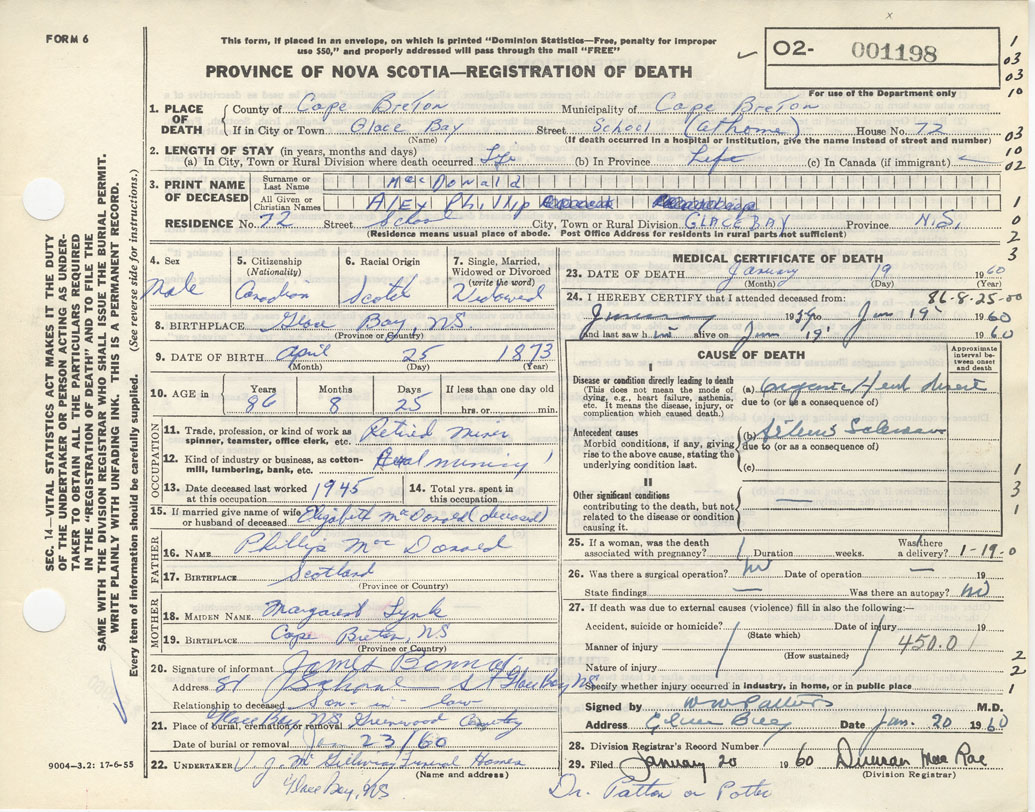 FORM 6
This form, if placed in an envelope, on which is printed "Dominion Statistics—Free, penalty for improper
use $50," and properly addressed will pass through the mail "FREE"
O2- 001198
For use of the Department only
PROVINCE OF NOVA SCOTIA—REGISTRATION OF DEATH
1. PLACE OF DEATH
County of Cape Breton Municipality of Cape Breton
If in City or Town Glace Bay Street School (at home) House No. 72
(Name) (If death occurred in a hospital or institution, give the name instead of street and number)
2. LENGTH OF STAY (in years, months and days)
(a) In City, Town or Rural Division where death occurred Life (b) In Province Life (c) In Canada (if immigrant)
3. PRINT NAME OF DECEASED
Surname or Last Name MacDonald
All Given or Christian Names Alex Phillip
RESIDENCE No. 72 Street School City, Town or Rural Division GLACE BAY Province N.S.
(Residence means usual place of abode. Post Office Address for residents in rural parts not sufficient)
4. Sex Male
5. Citizenship (Nationality) Canadian
6. Racial Origin Scotch
7. Single, Married, Widowed or Divorced (write the word) Widowed
8. BIRTHPLACE Glace Bay, NS
(Province or Country)
9. DATE OF BIRTH April 25 1873
(Month) (Day) (Year)
10. AGE in Years 86 Months 8 Days 25 If less than one day old hrs. or min.
OCCUPATION
11. Trade, profession, or kind of work as spinner, teamster, office clerk, etc. Retired Miner
12. Kind of industry or business, as cotton-mill, lumbering, bank, etc. Coal mining
13. Date deceased last worked at this occupation 1945
14. Total yrs. spent in this occupation
15. If married give name of wife or husband of deceased Elizabeth MacDonald (deceased)
FATHER
16. NAME Phillip MacDonald
17. BIRTHPLACE Scotland
(Province or Country)
MOTHER
18. MAIDEN NAME Margaret Lynk
19. BIRTHPLACE Cape Breton, NS
(Province or Country)
20. Signature of informant James
Address 81 School St Glace Bay NS
Relationship to deceased Son-in-law
21. Place of burial, cremation or removal Glace Bay NS Greenwood Cemetery
Date of burial or removal Jan 23/60
22. UNDERTAKER V. J. McGillivray Funeral Homes
(Name and address)
Glace Bay, NS
MEDICAL CERTIFICATE OF DEATH
23. DATE OF DEATH January 19 1960
(Month) (Day) (Year)
86-8-25-00
24. I HEREBY CERTIFY that I attended deceased from:
January 1959 to Jan 19 1960
and last saw him alive on Jan 19 1960
CAUSE OF DEATH
Approximate interval between onset and death
I
Disease or condition directly leading to death
(This does not mean the mode of dying, e.g., heart failure, asthenia, etc. It means the disease, injury, or complication which caused death.)
(a) Heart disease
due to (or as a consequence of)
Antecedent causes
Morbid conditions, if any, giving rise to the above cause, stating the underlying condition last.
(b)
due to (or as a consequence of)
(c)
II
Other significant conditions
contributing to the death, but not related to the disease or condition causing it.
25. If a woman, was the death associated with pregnancy? Duration weeks. Was there a delivery? 1-19-0
26. Was there a surgical operation? no Date of operation — 19
State findings — Was there an autopsy? no
27. If death was due to external causes (violence) fill in also the following:—
Accident, suicide or homicide? Date of injury 19
(State which)
Manner of injury 450.0
(How sustained)
Nature of injury
Specify whether injury occurred in industry, in home, or in public place
Signed by M.D.
Address Glace Bay Date Jan. 20 1960
28. Division Registrar's Record Number 7
29. Filed January 20 1960 Duncan MacRae
(Division Registrar)
Dr. Patton or Potter
SEC. 14—VITAL STATISTICS ACT MAKES IT THE DUTY
OF THE UNDERTAKER OR PERSON ACTING AS UNDER-
TAKER TO OBTAIN ALL THE PARTICULARS REQUIRED
IN THE "REGISTRATION OF DEATH" AND TO FILE THE
SAME WITH THE DIVISION REGISTRAR WHO SHALL ISSUE THE BURIAL PERMIT.
WRITE PLAINLY WITH UNFADING INK. THIS IS A PERMANENT RECORD.
Every item of information should be carefully supplied. (See reverse side for instructions.)
9004—3.2: 17-6-55
1
03
03
10
03
10
02
1
0
2
3
1
3
1
0
2
2
1